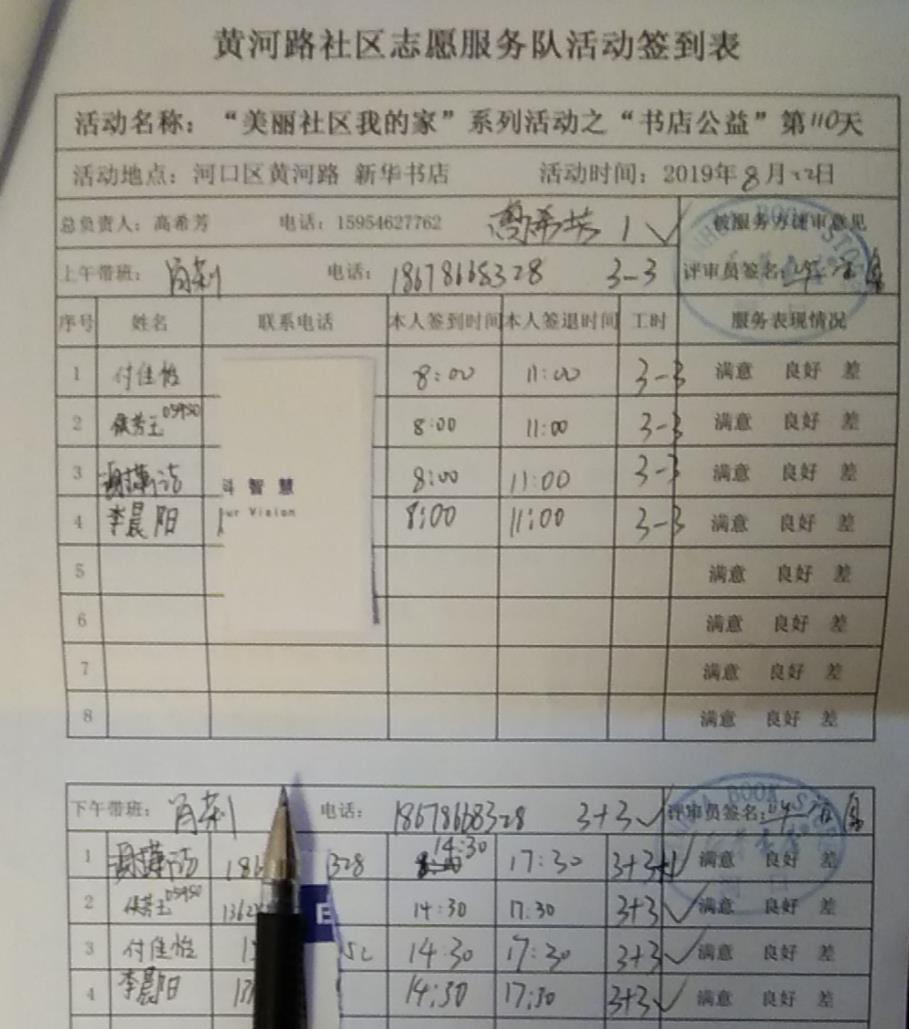 黄河路社区志愿服务队活动签到表
活动名称：“美丽社区我的家”系列活动之“书店公益”第110天
活动地点：河口区黄河路 新华书店 活动时间：2019年8月12日
总负责人：高希芳 电话：15954627762 高希芳 1 ✓ 被服务方评审意见
上午带班：肖荆 电话：18678668328 3-3 评审员签名：
序号 姓名 联系电话 本人签到时间 本人签退时间 工时 服务表现情况
1 付佳怡 8:00 11:00 3-3 满意 良好 差
2 侯芳玉 05950 8:00 11:00 3-3 满意 良好 差
3 8:00 11:00 3-3 满意 良好 差
斗智慧
ur Vision
4 李晨阳 8:00 11:00 3-3 满意 良好 差
5 满意 良好 差
6 满意 良好 差
7 满意 良好 差
8 满意 良好 差
下午带班：肖荆 电话：18678668328 3+3 ✓ 评审员签名：
BOOK STORE
1 186 328 14:30 17:30 3+3+1 满意 良好 差
2 侯芳玉 05950 1362 14:30 17:30 3+3 ✓ 满意 良好 差
3 付佳怡 14:30 17:30 3+3 ✓ 满意 良好 差
4 李晨阳 14:30 17:30 3+3 ✓ 满意 良好 差